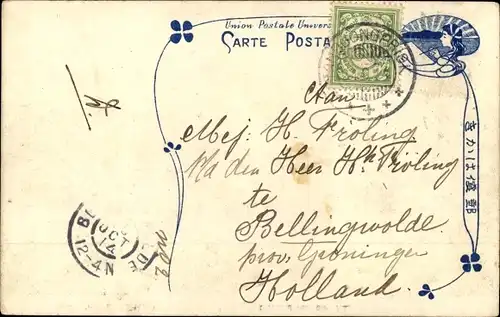 Union Postale Univers
CARTE POSTA
Aan
Mej. H. Fröling
Den Heer Hk Fröling
te
Bellingwolde
prov. Groningen
Holland.
きかは便郵
OCT
14
12-4N